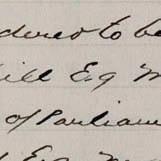 dered to be
ill Esq M
of Parliam
Esq M